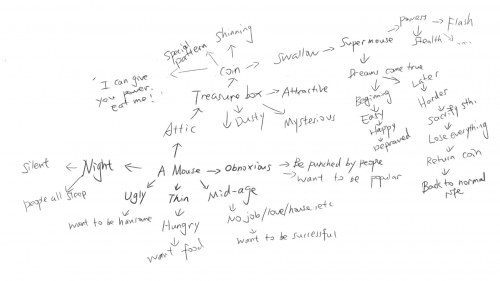 Powers → Flash
Stealth ....
Shinning
Special
pattern
Coin → Swallow → Super mouse
" I can give
you power.
eat me! "
Dreams come true
Beginning
Easy
Happy
Depraved
Later
Harder
Sacrify sth.
Lose everything
Return coin
Back to normal
life
Treasure box → Attractive
Dusty
Mysterious
Attic
Silent ← Night ← A Mouse → Obnoxious → Be punched by people
want to be popular
people all sleep
Ugly
want to be handsome
Thin
Hungry
want food
Mid-age
No job/love/house, etc
want to be successful